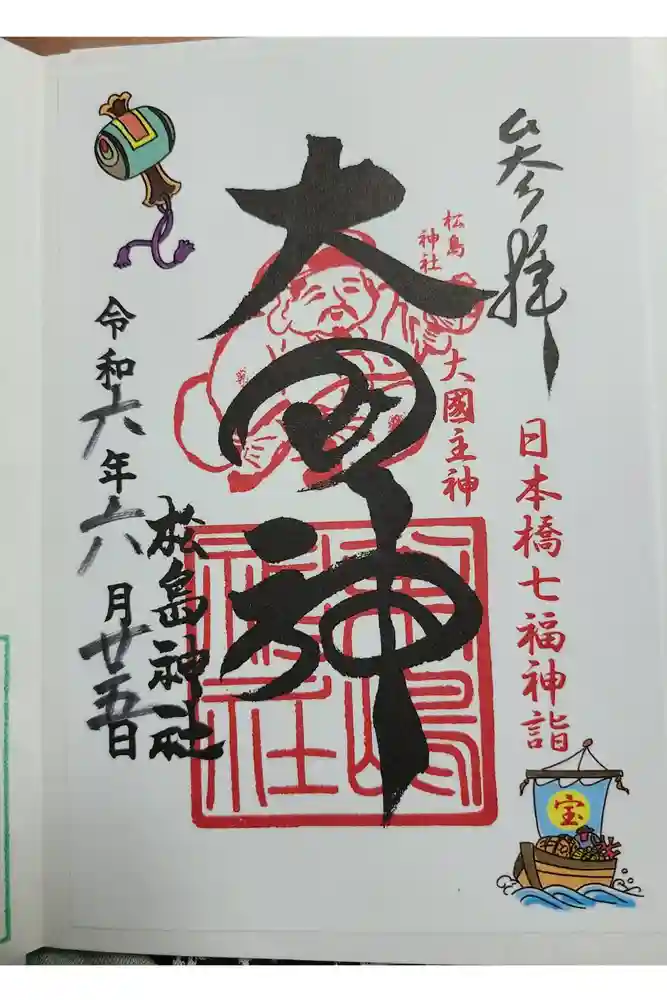 参拝
日本橋七福神詣
宝
松島
神社
大國主神
大国神
松島
神社
松島神社
令和六年六月廿五日